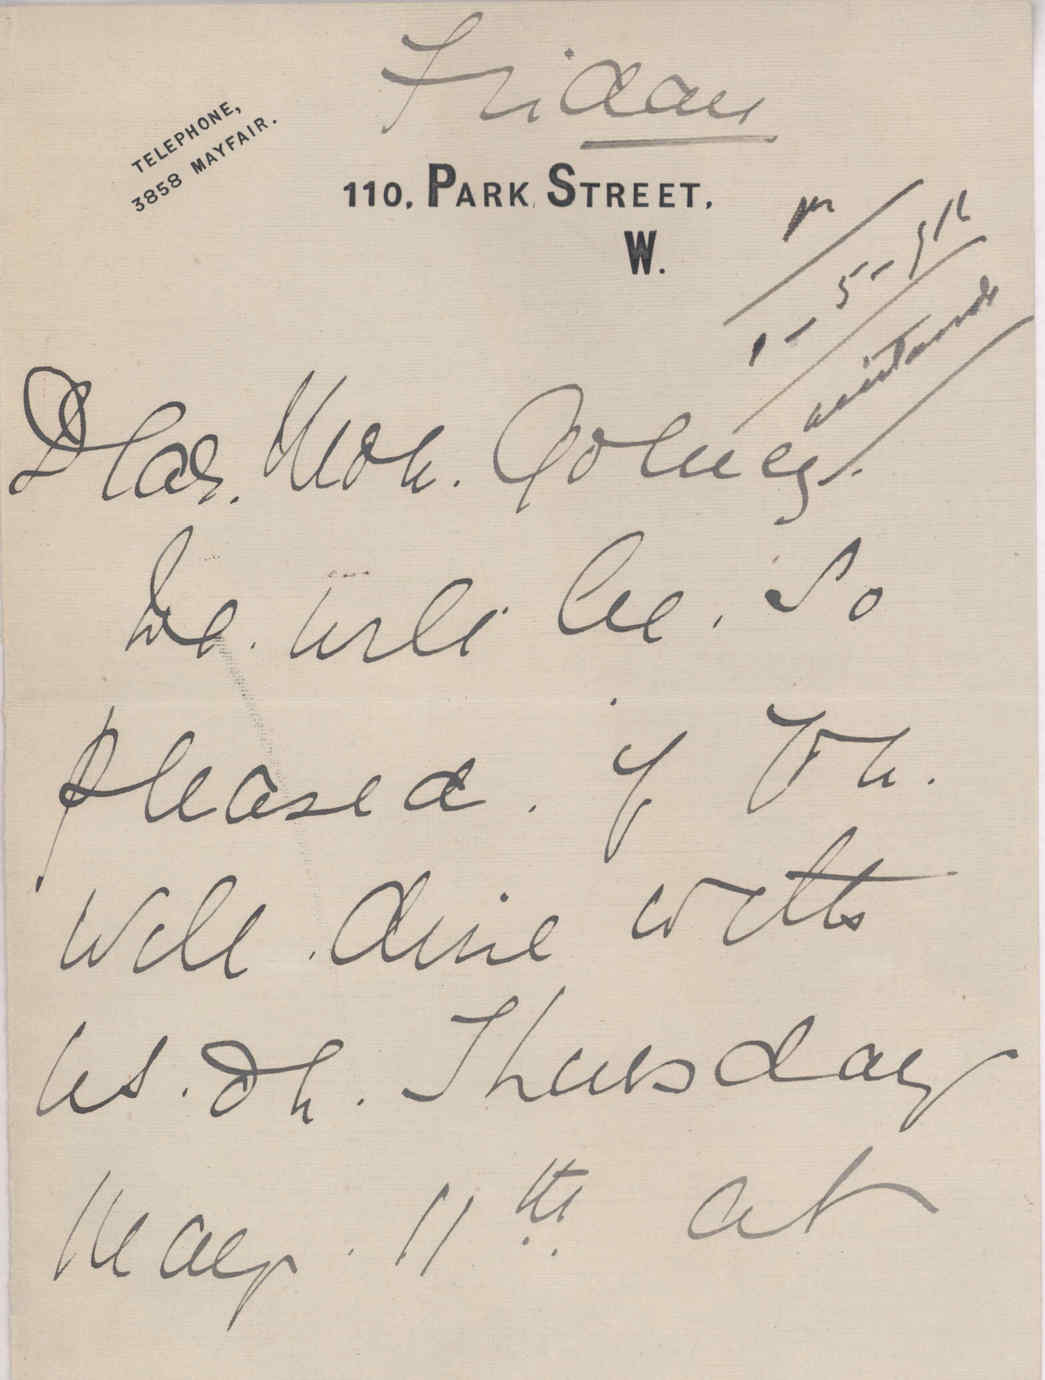 Friday
TELEPHONE,
3858 MAYFAIR.
110, PARK STREET,
W.
1-5-916
Dear
We will be so
pleased. if you.
will. dine with
us. on. Thursday
May. 11th at